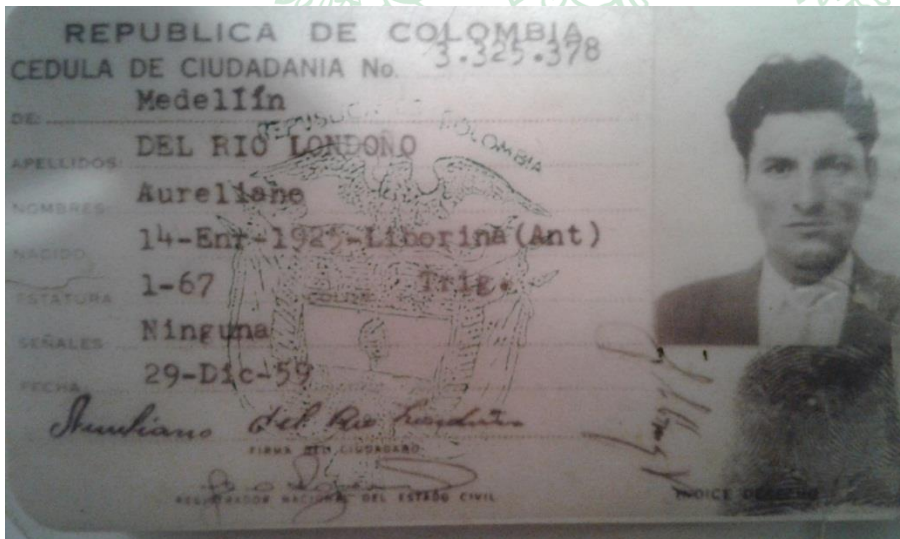 REPUBLICA DE COLOMBIA
CEDULA DE CIUDADANIA No. 3.325.378
DE: Medellín
APELLIDOS: DEL RIO LONDOÑO
NOMBRES Aureliano
NACIDO 14-Enr-1925-Liborina(Ant)
ESTATURA 1-67 Trig.
SEÑALES Ninguna
FECHA 29-Dic-59
REPUBLICA DE COLOMBIA
Aureliano del Rio Londoño
FIRMA DEL CIUDADANO
REGISTRADOR NACIONAL DEL ESTADO CIVIL
INDICE DERECHO